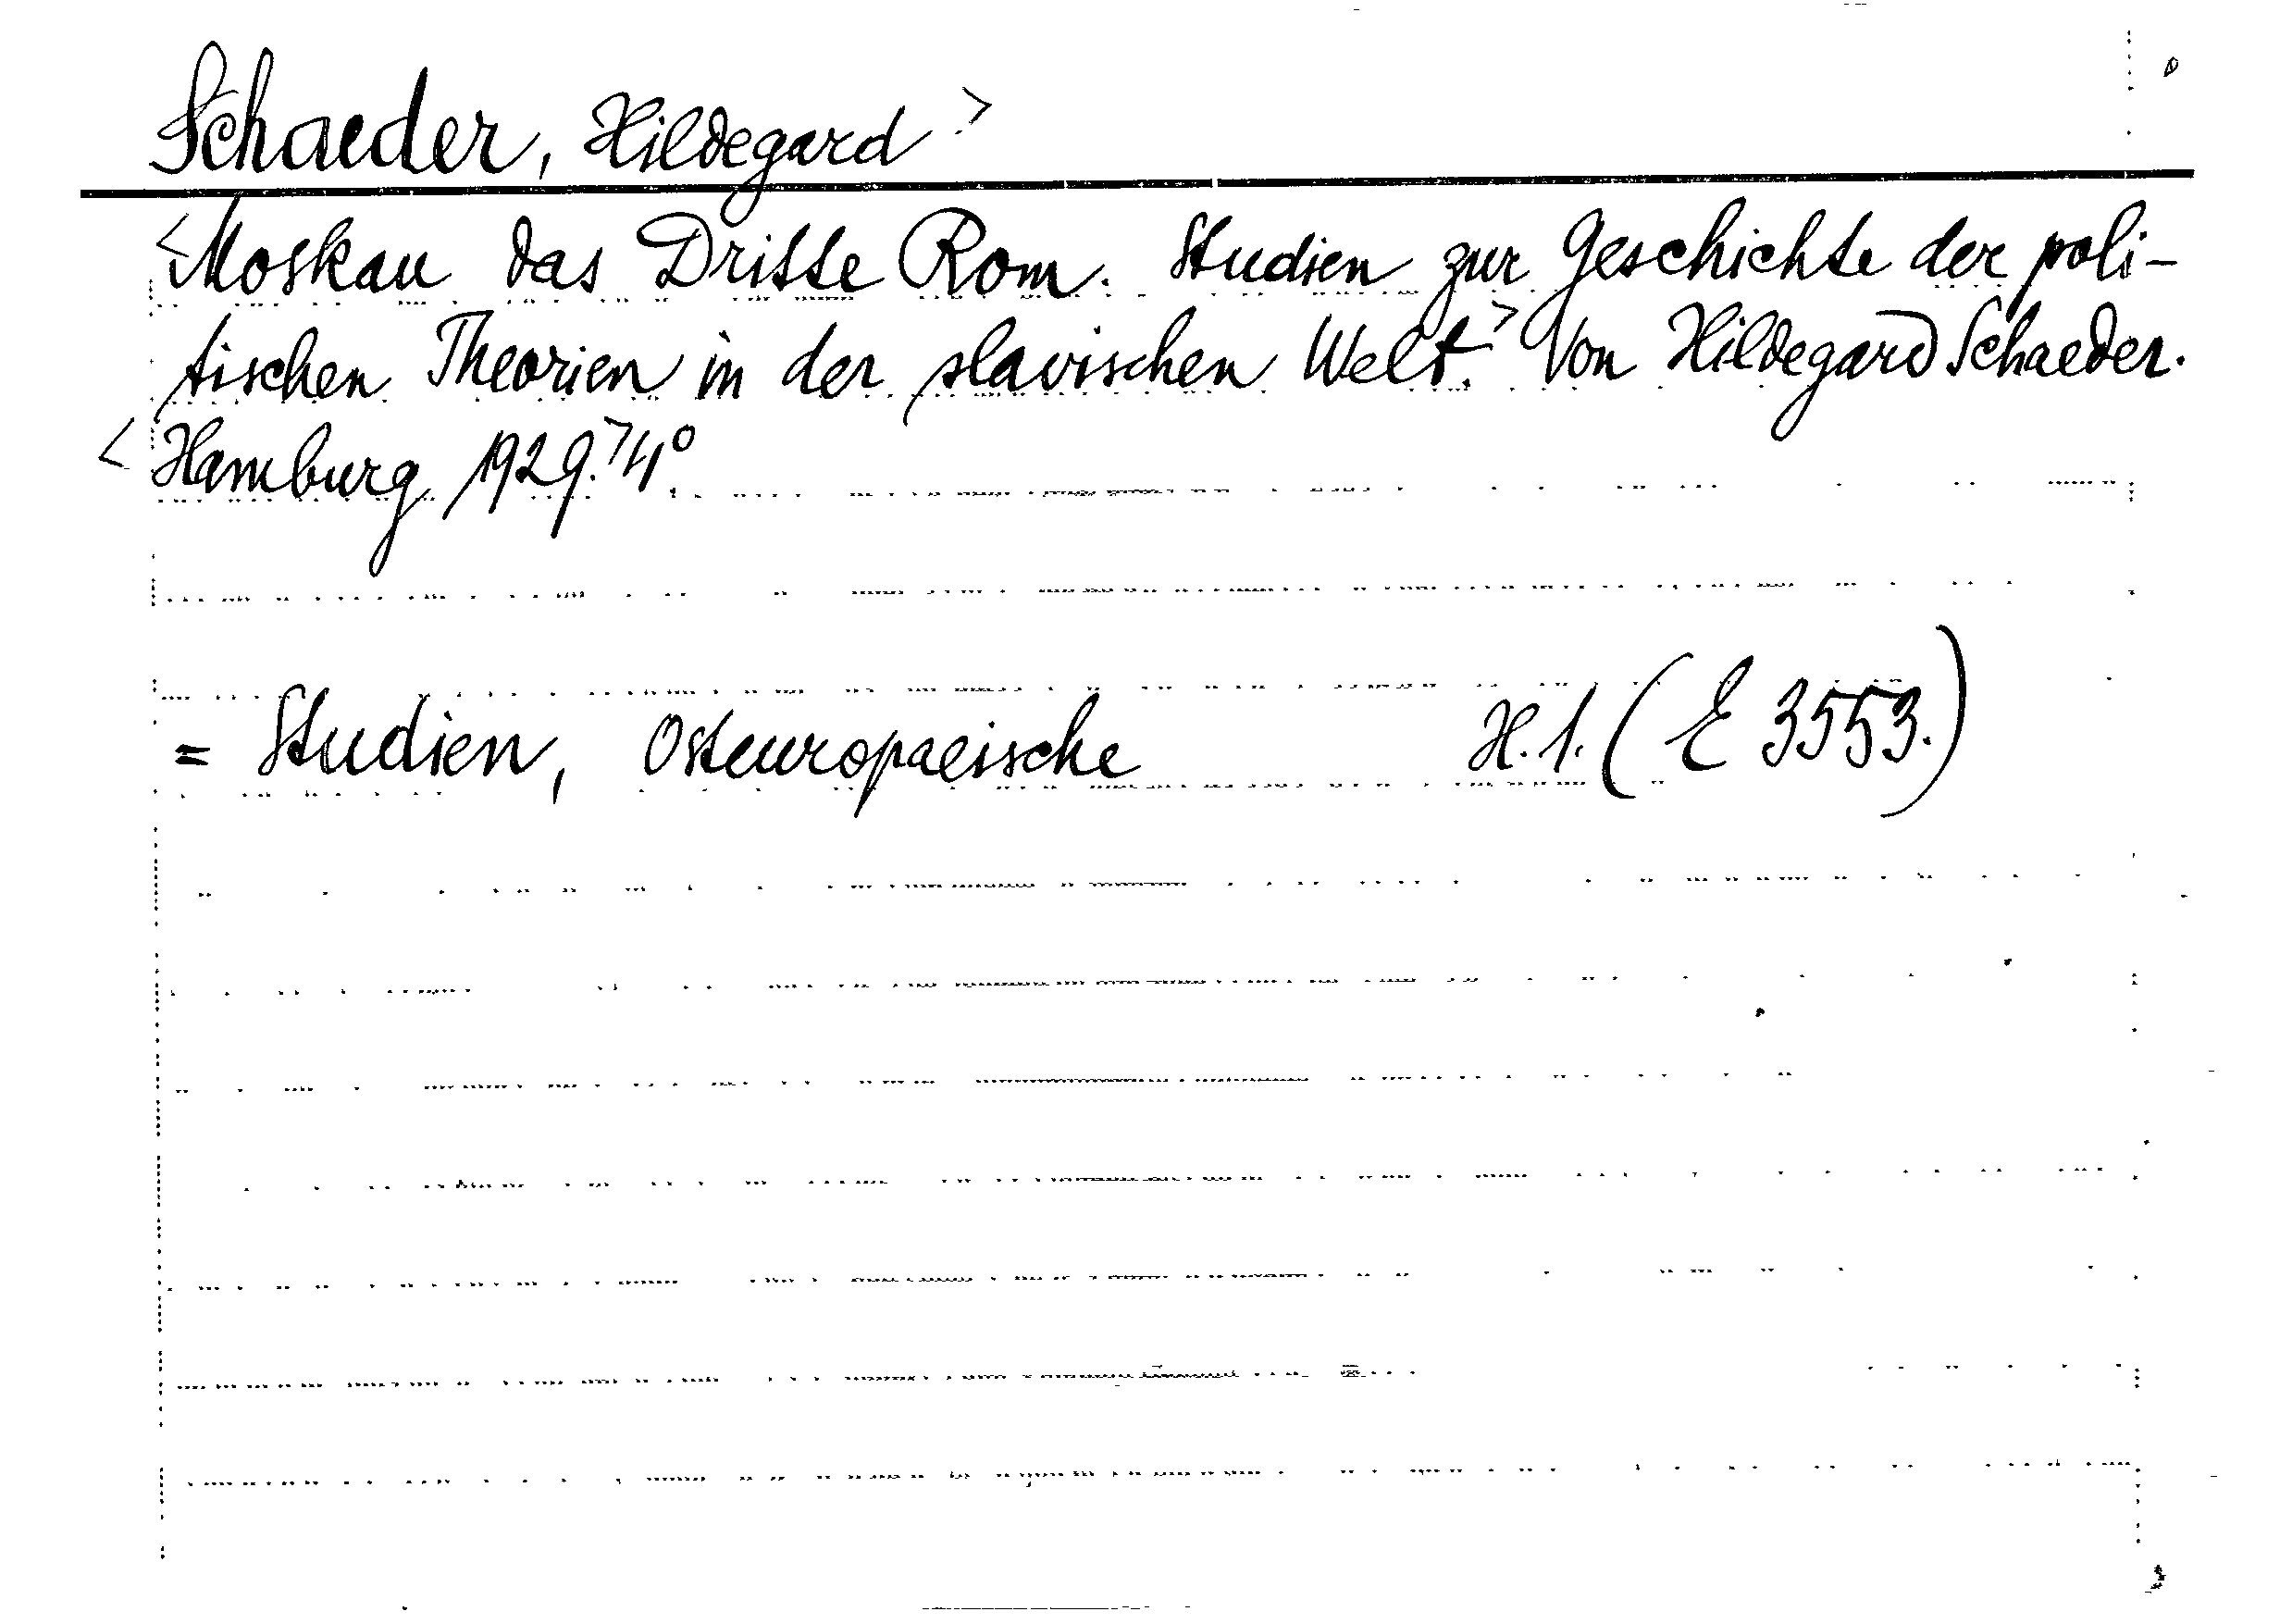 Schaeder, Hildegard >
< Moskau das Dritte Rom. Studien zur Geschichte der poli-
tischen Theorien in der slavischen Welt. > Von Hildegard Schaeder.
< Hamburg 1929. > 4°
= Studien, Osteuropaeische H. 1. (E 3553.)